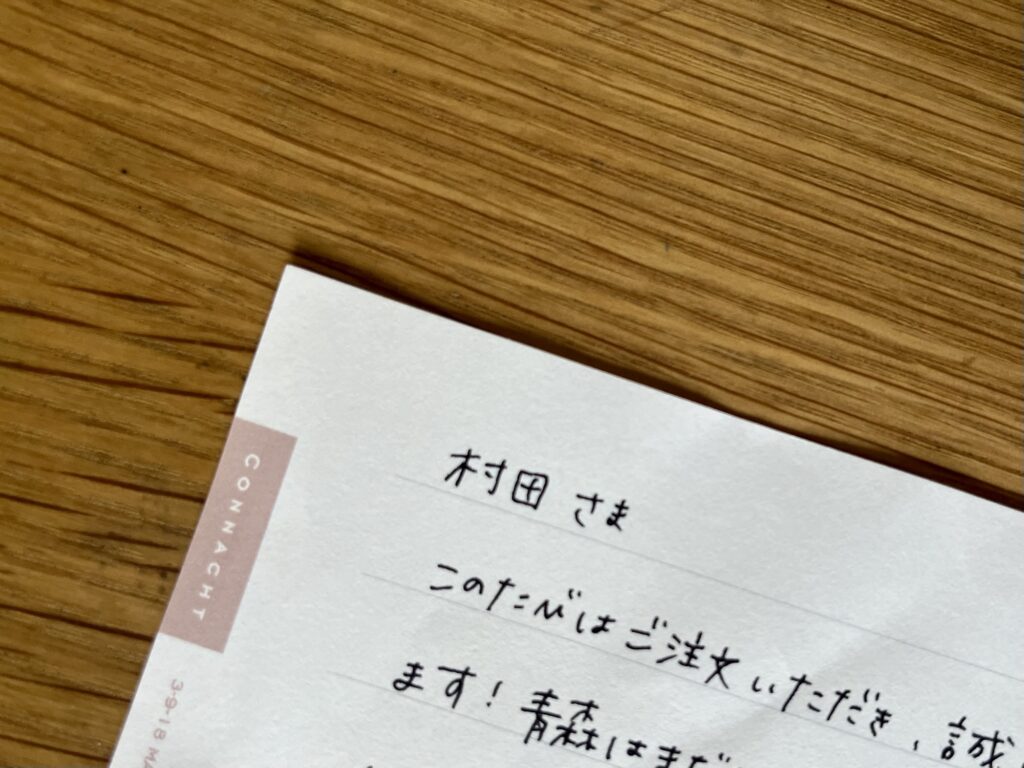 村田 さま
このたびは ご注文 いただき、誠
ます! 青森はまだ
CONNACHT
3-9-18